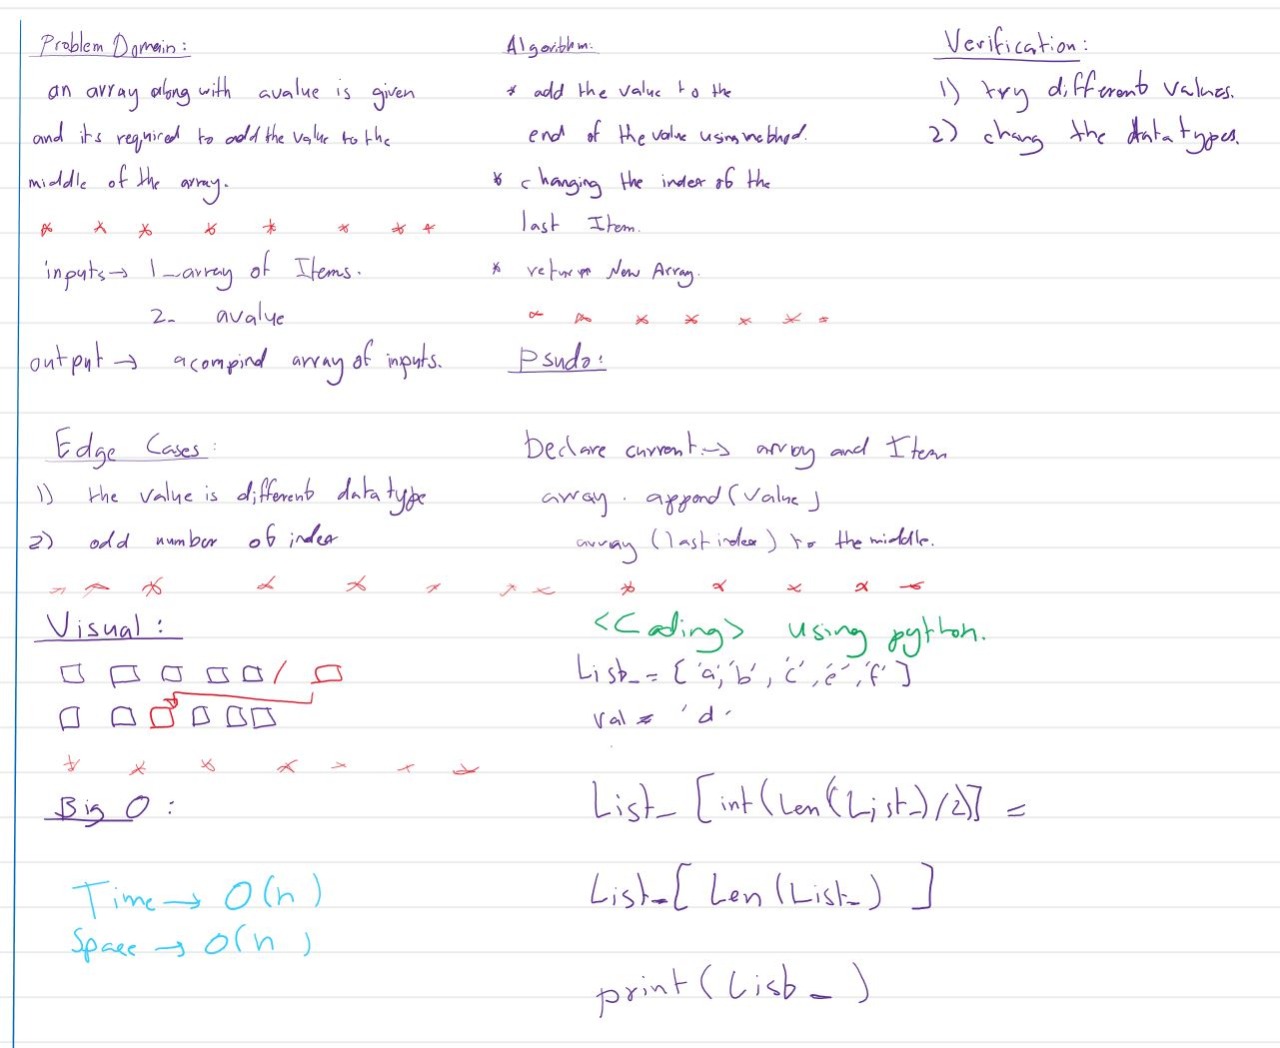 Problem Domain:
an array along with avalue is given
and its required to add the value to the
middle of the array.
inputs→ 1_array of Items.
2- avalue
output → acompind array of inputs.
Edge Cases:
1) the value is different datatype
2) odd number of index
Visual:
Big O:
Time → O(n)
Space → O(n)
Algorithm:
* add the value to the
end of the value using method.
* changing the index of the
last Item.
* return New Array.
Psudo:
Declare current→ array and Item
array. append(value)
array (last index) to the middle.
<Coding> using python.
List_ = ['a','b','c','e','f']
val = 'd'
List_[int(Len(List_)/2)] =
List_[Len(List_)]
print(List_)
Verification:
1) try different values.
2) chang the data types.